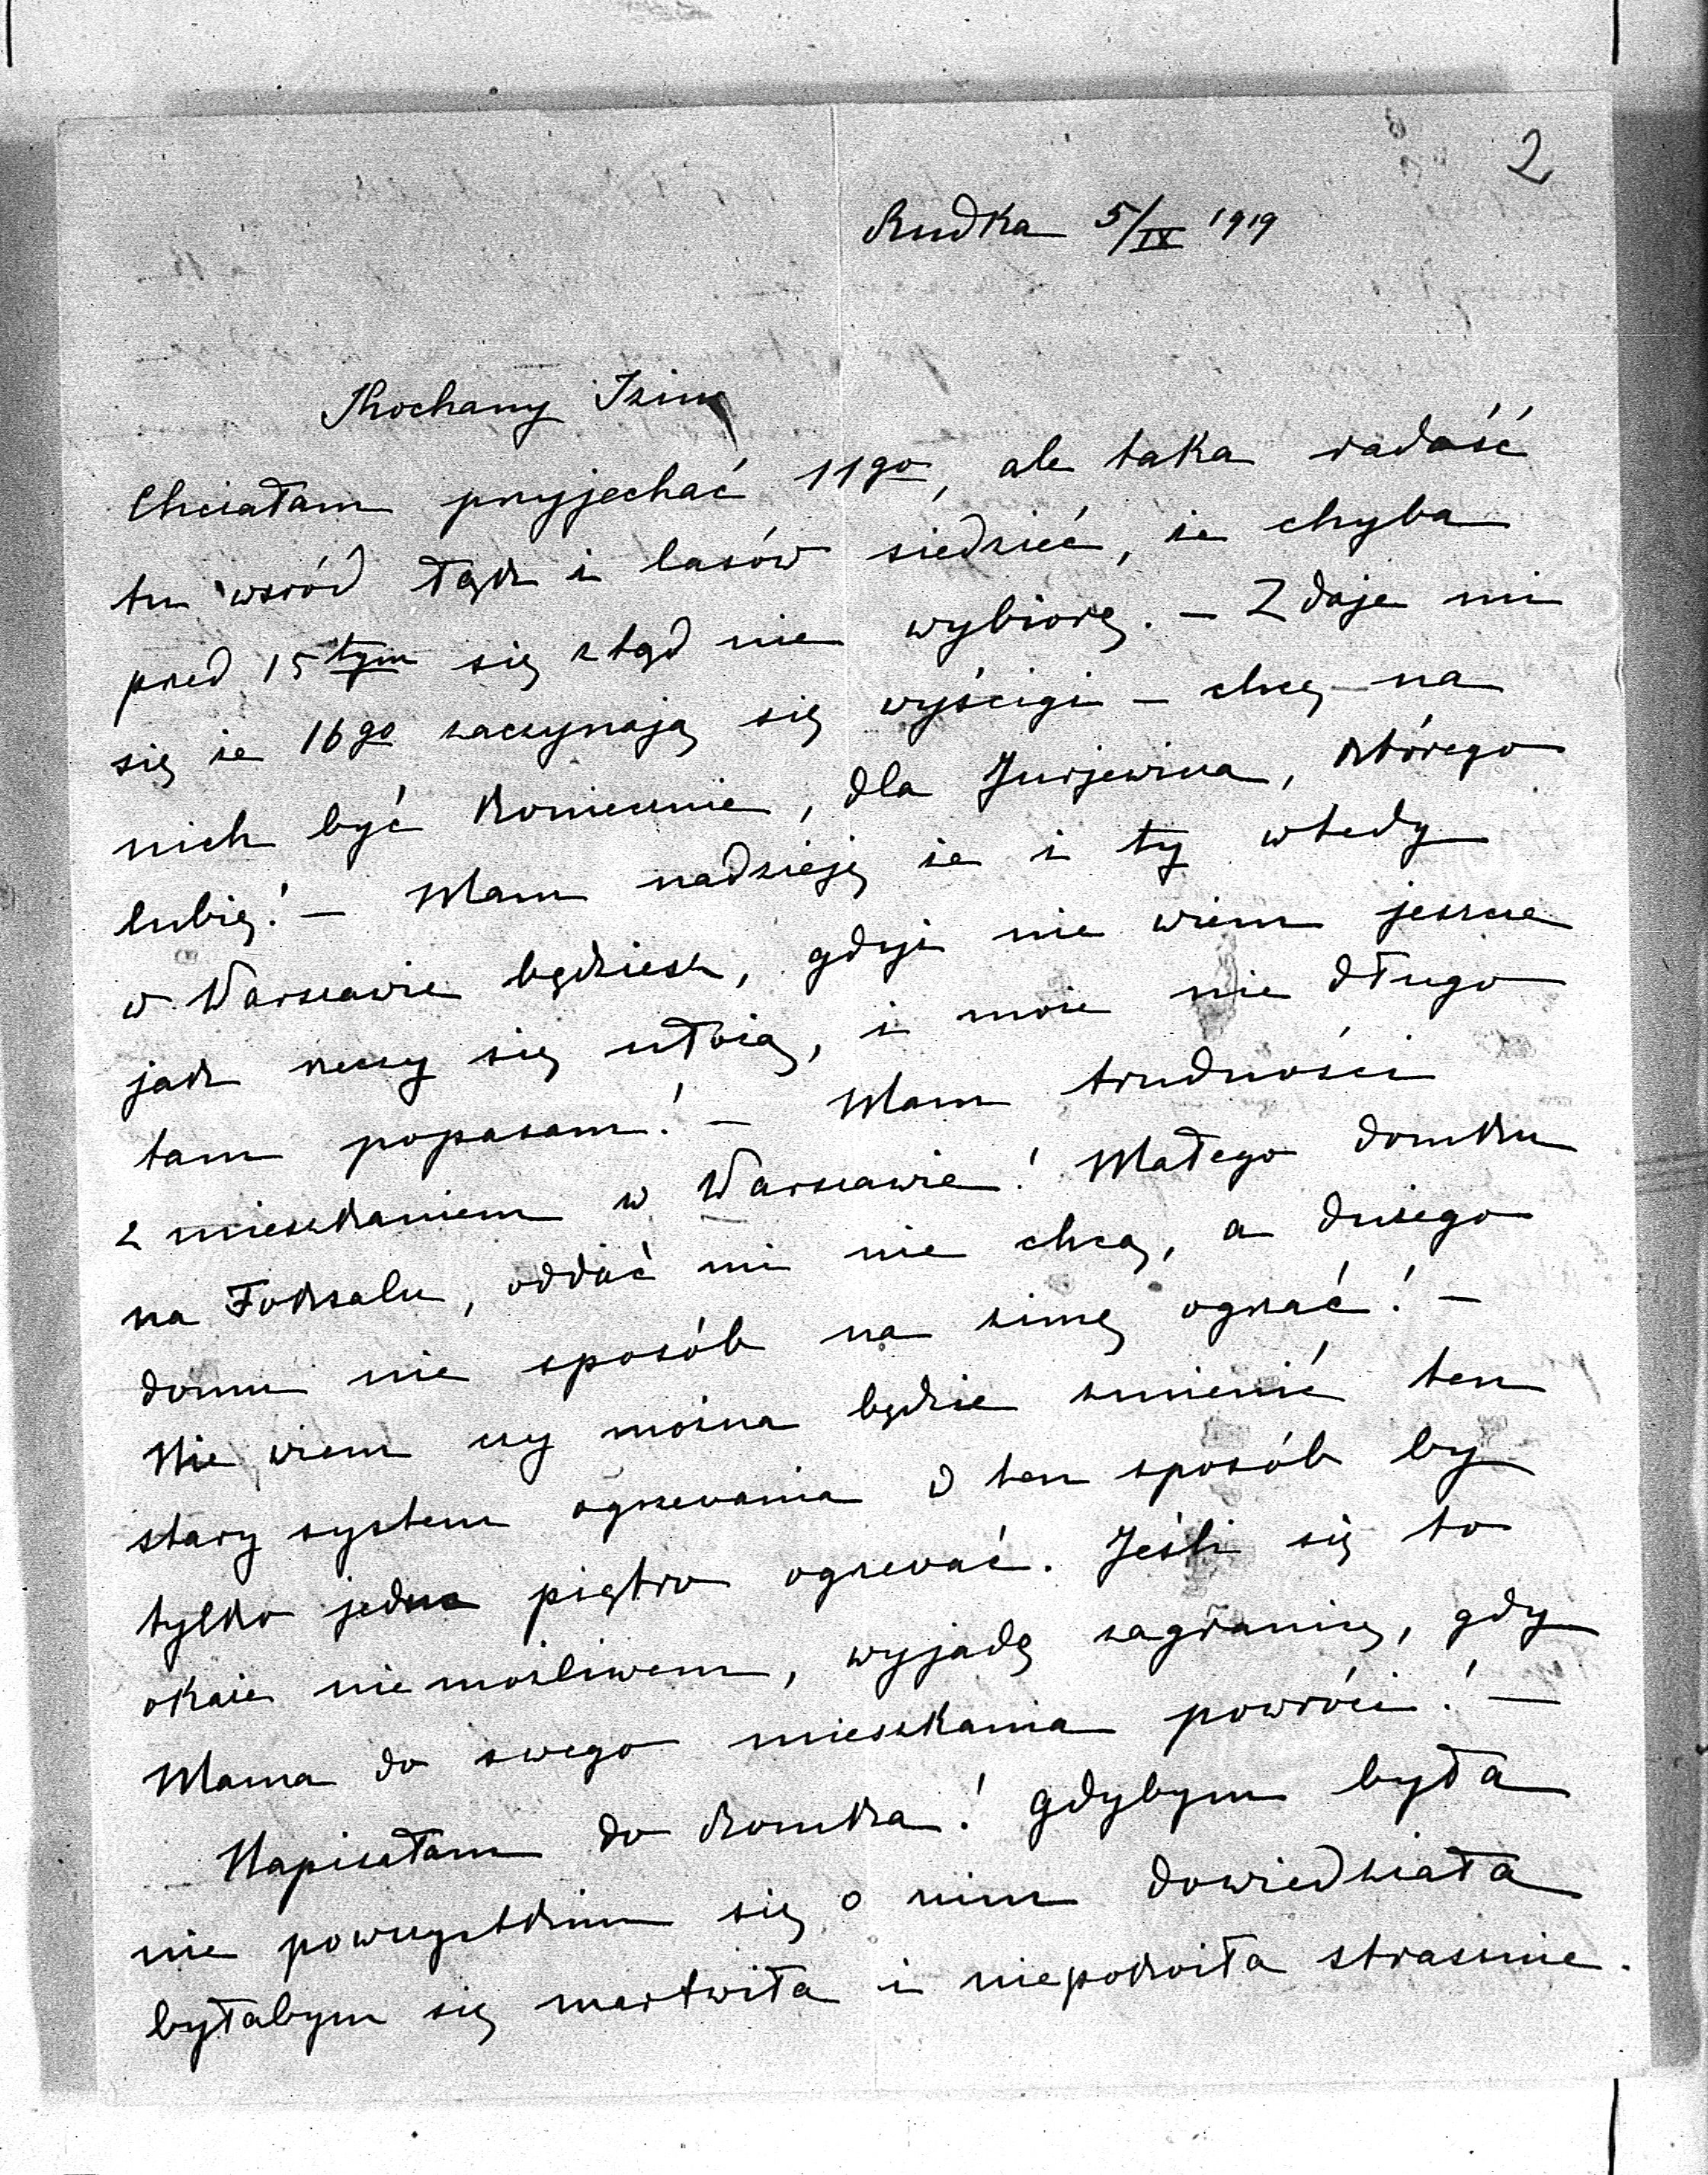 2
Rudka 5/IX 1919
Kochany Iziu
Chciałam przyjechać 11go, ale taka radość
tu wsród łąk i lasów siedzieć, że chyba
przed 15tym się ztąd nie wybiorę. — Zdaje mi
się że 16go zaczynają się wyścigi — chcę na
nich być koniecznie, dla Jurjewicza, którego
lubię! — Mam nadzieję że i ty wtedy
w Warszawie będziesz, gdyż nie wiem jeszcze
jak rzeczy się ułożą, i może nie długo
tam popasam! — Mam trudności
z mieszkaniem w Warszawie! Małego domku
na Foksalu, oddać mi nie chcą, a dużego
domu nie sposób na zimę ogrzać! —
Nie wiem czy można będzie zmienić ten
stary system ogrzewania w ten sposób by
tylko jedno piętro ogrzewać. Jeśli się to
okaże niemożliwem, wyjadę zagranicę, gdy
Mama do swego mieszkania powróci! —
Napisałam do Romka! gdybym była
nie powszystkim się o nim dowiedziała
byłabym się martwiła i niepokoiła strasznie.